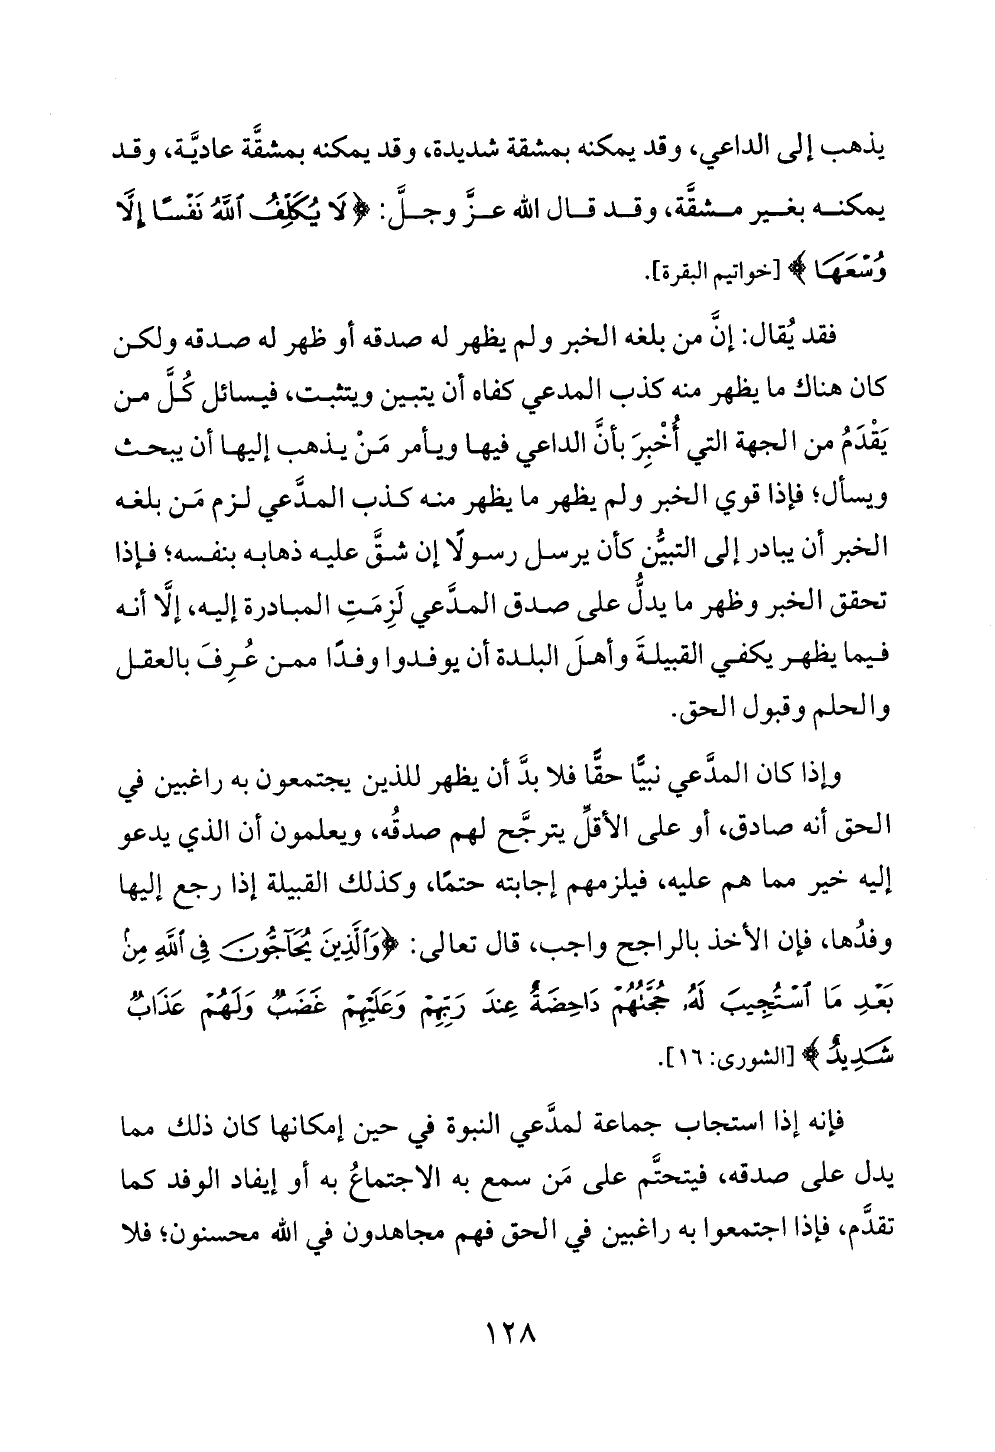 يذهب إلى الداعي، وقد يمكنه بمشقة شديدة، وقد يمكنه بمشقَّة عاديَّة، وقد
يمكنه بغير مشقَّة، وقد قال الله عزَّ وجلَّ: ﴿لَا يُكَلِّفُ ٱللَّهُ نَفْسًا إِلَّا
وُسْعَهَا﴾ [خواتيم البقرة].
فقد يُقال: إنَّ من بلغه الخبر ولم يظهر له صدقه أو ظهر له صدقه ولكن
كان هناك ما يظهر منه كذب المدعي كفاه أن يتبين ويتثبت، فيسائل كُلَّ من
يَقْدَمُ من الجهة التي أُخْبِرَ بأنَّ الداعي فيها ويأمر مَنْ يذهب إليها أن يبحث
ويسأل؛ فإذا قوي الخبر ولم يظهر ما يظهر منه كذب المدَّعي لزم مَن بلغه
الخبر أن يبادر إلى التبيُّن كأن يرسل رسولًا إن شقَّ عليه ذهابه بنفسه؛ فإذا
تحقق الخبر وظهر ما يدلُّ على صدق المدَّعي لَزِمَتِ المبادرة إليه، إلَّا أنه
فيما يظهر يكفي القبيلةَ وأهلَ البلدة أن يوفدوا وفدًا ممن عُرِفَ بالعقل
والحلم وقبول الحق.
وإذا كان المدَّعي نبيًّا حقًّا فلا بدَّ أن يظهر للذين يجتمعون به راغبين في
الحق أنه صادق، أو على الأقلِّ يترجَّح لهم صدقُه، ويعلمون أن الذي يدعو
إليه خير مما هم عليه، فيلزمهم إجابته حتمًا، وكذلك القبيلة إذا رجع إليها
وفدُها، فإن الأخذ بالراجح واجب، قال تعالى: ﴿وَٱلَّذِينَ يُحَآجُّونَ فِي ٱللَّهِ مِنۢ
بَعْدِ مَا ٱسْتُجِيبَ لَهُۥ حُجَّتُهُمْ دَاحِضَةٌ عِندَ رَبِّهِمْ وَعَلَيْهِمْ غَضَبٌ وَلَهُمْ عَذَابٌ
شَدِيدٌ﴾ [الشورى: ١٦].
فإنه إذا استجاب جماعة لمدَّعي النبوة في حين إمكانها كان ذلك مما
يدل على صدقه، فيتحتَّم على مَن سمع به الاجتماعُ به أو إيفاد الوفد كما
تقدَّم، فإذا اجتمعوا به راغبين في الحق فهم مجاهدون في الله محسنون؛ فلا
١٢٨